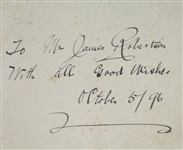 To Mr James Robertson
With all Good Wishes
October 5/96